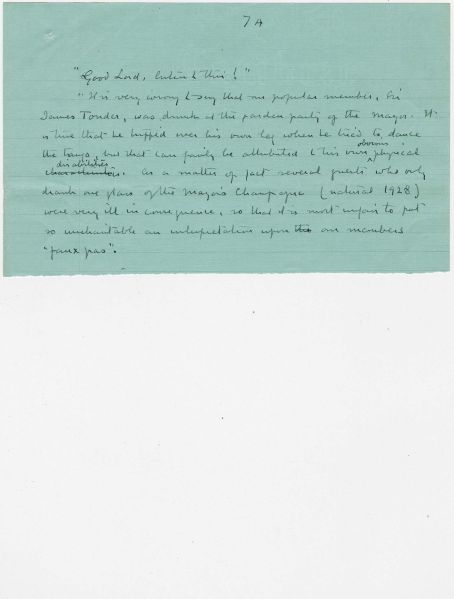 7A
"Good Lord, listen to this!"
"It is very wrong to say that our popular member, Sir
James Tondar, was drunk at the garden party of the Mayor. It
is true that he tripped over his own leg when he tried to dance
the tango, but that can fairly be attributed to his own obvious physical
disabilities. As a matter of fact several guests who only
drank one glass of the Mayor's Champagne (natural 1928)
were very ill in consequence, so that it is most unfair to put
so uncharitable an interpretation upon the our members
"faux pas".